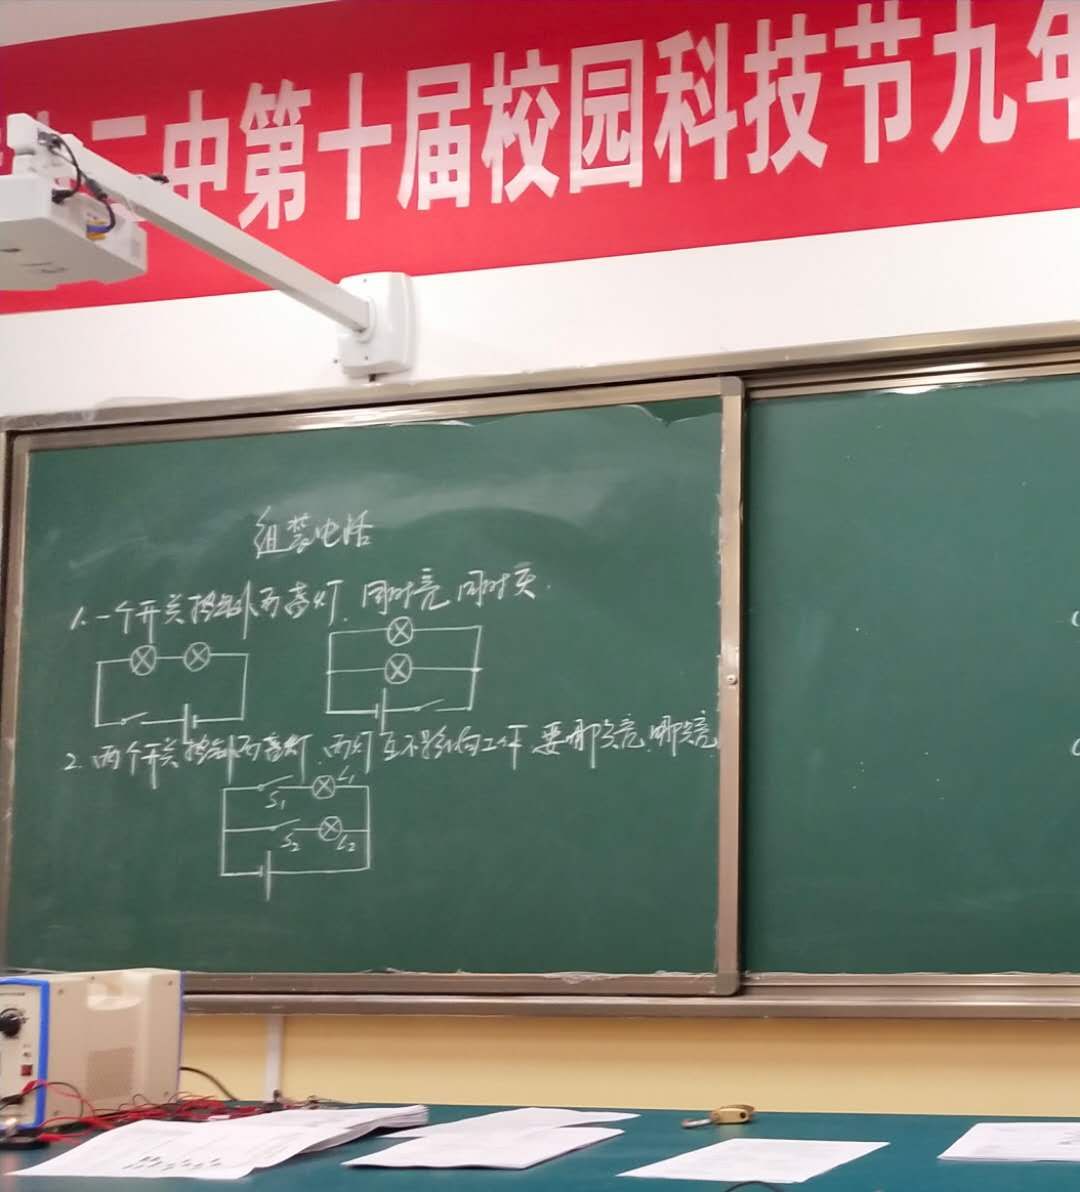 二中第十届校园科技节九年
组装电路
1. 一个开关控制两盏灯, 同时亮, 同时灭.
2. 两个开关控制两盏灯, 两灯互不影响工作, 要哪亮, 哪亮
S₁ L₁
S₂ L₂